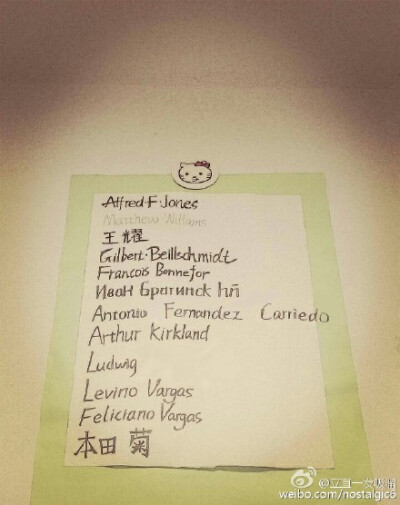 Alfred·F·Jones
Matthew Williams
王耀
Gilbert·Beillschmidt
Francois Bonnefor
Иван Брагинск hй
Antonio Fernandez Carriedo
Arthur Kirkland
Ludwig
Levino Vargas
Feliciano Vargas
本田 菊
weibo.com/nostalgico